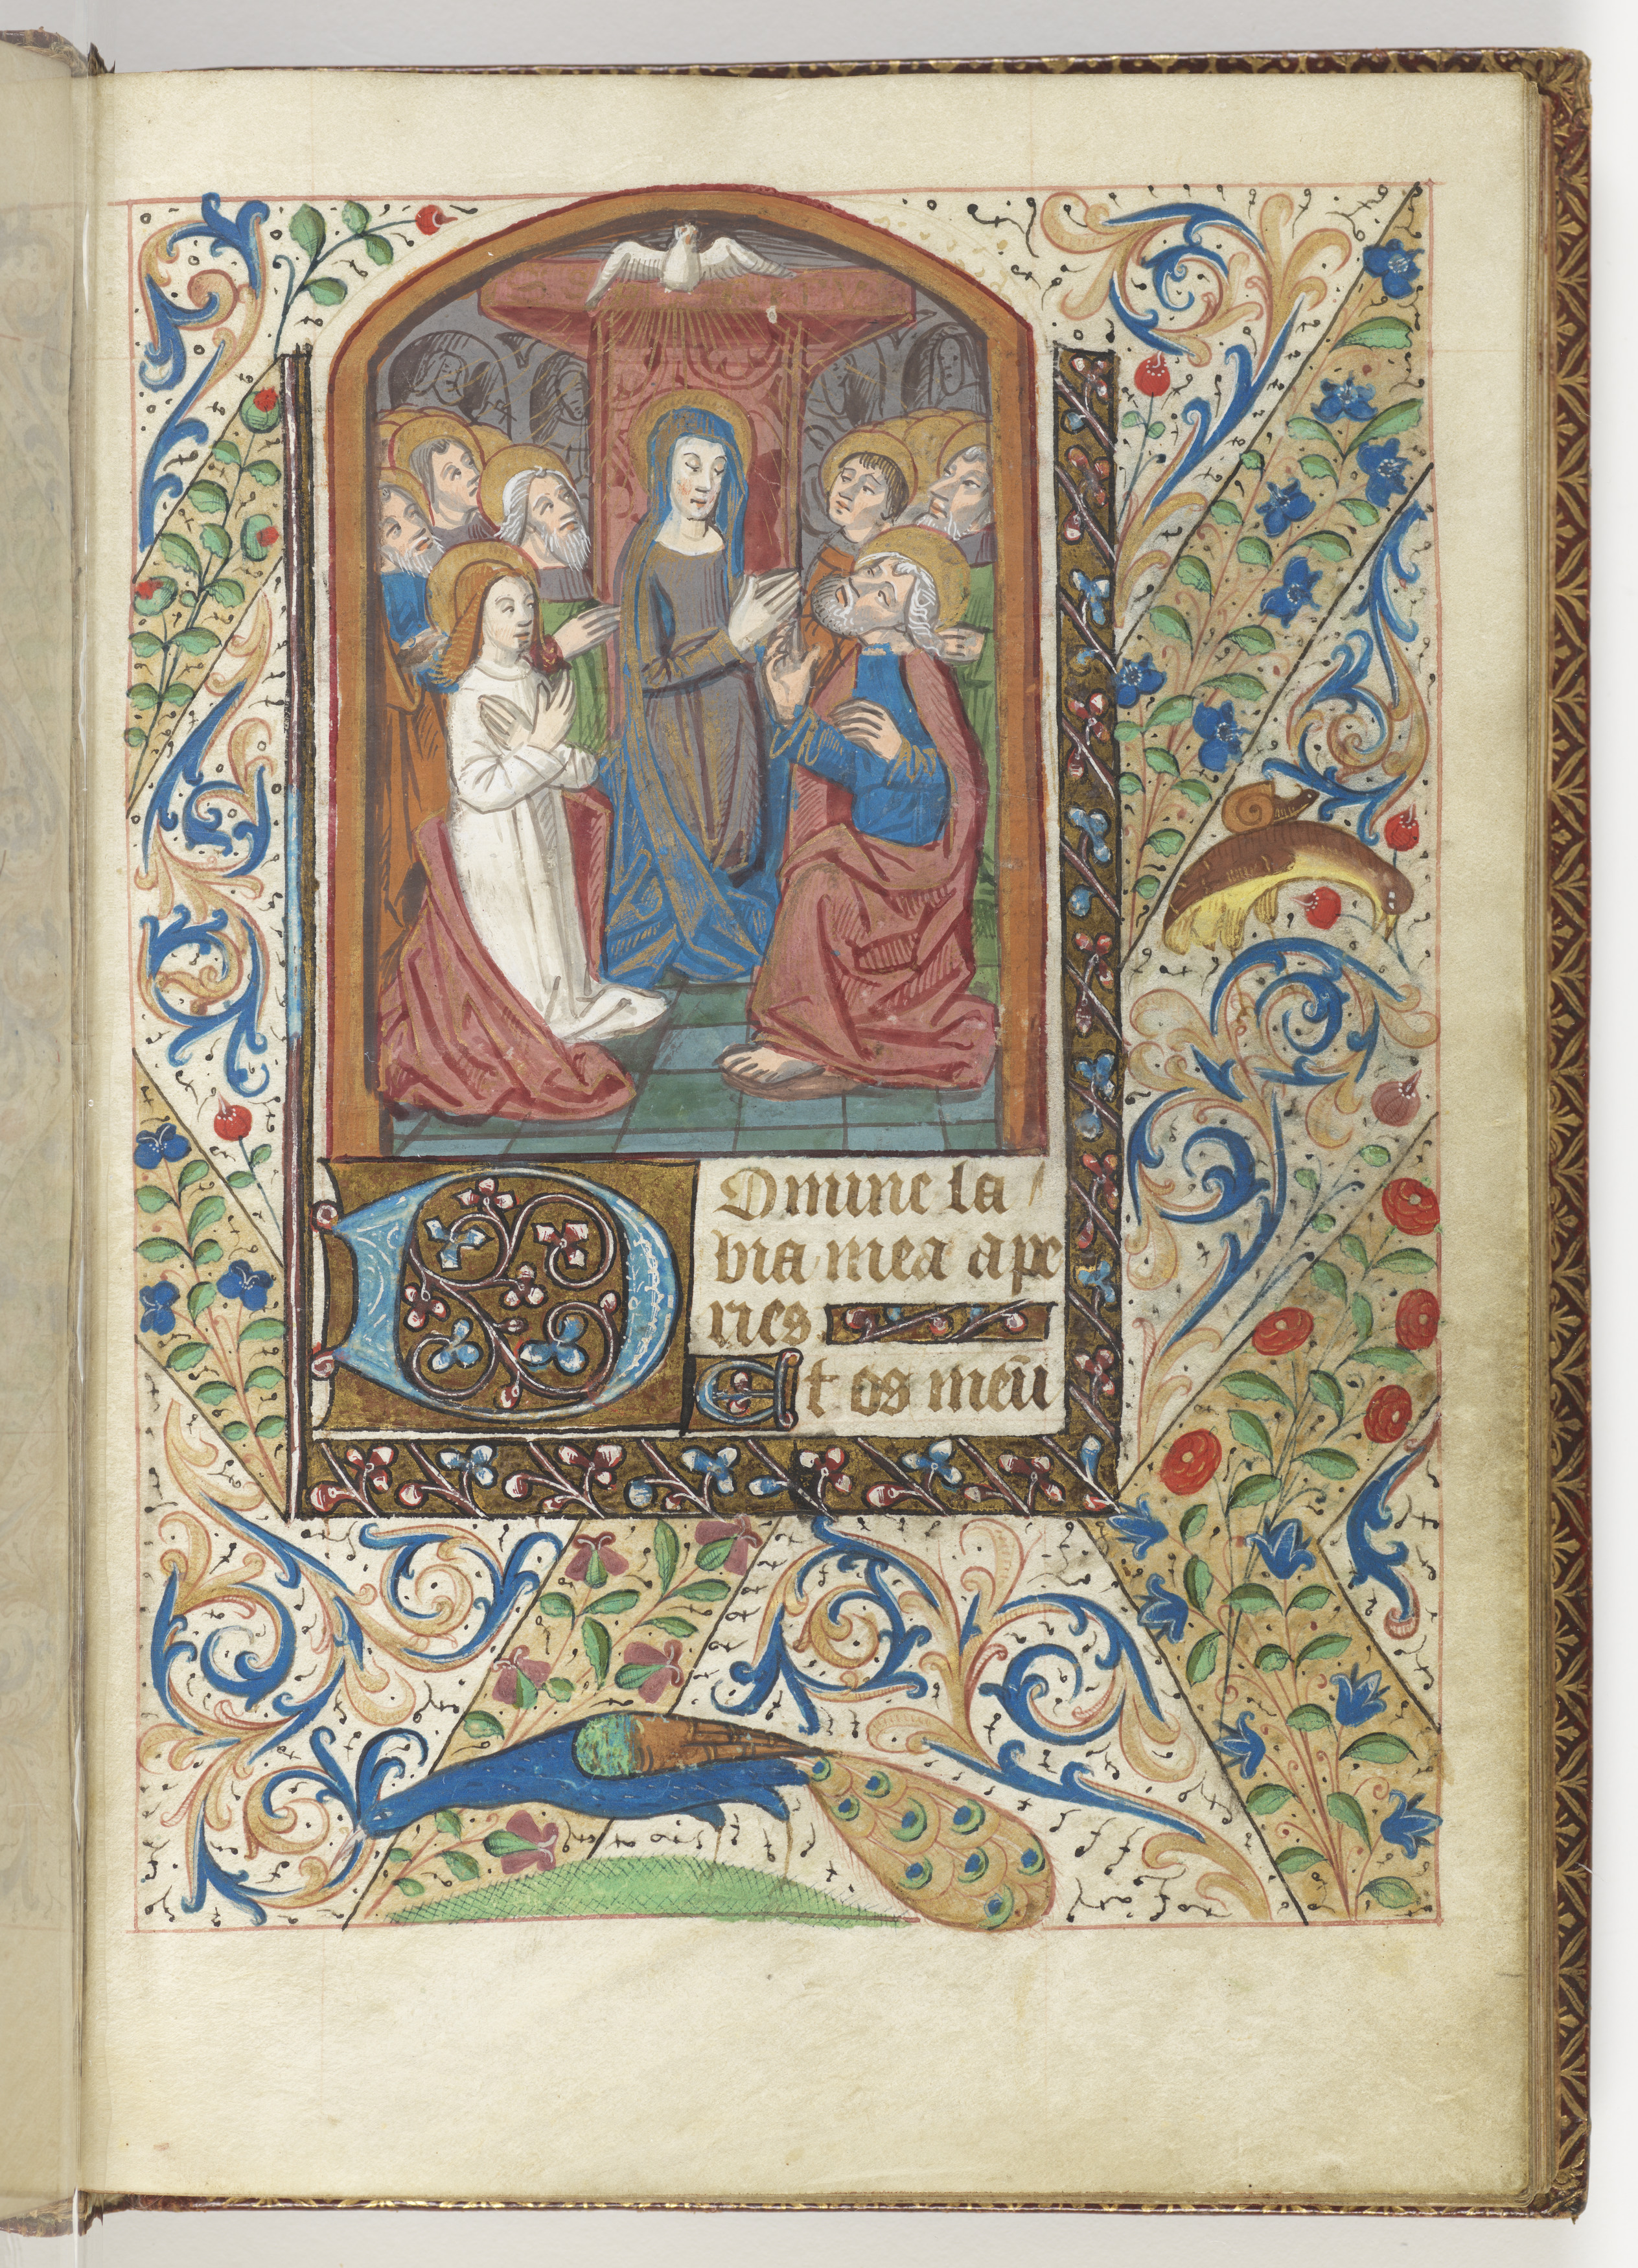 Domine la
bia mea ape
ries
Et os meū